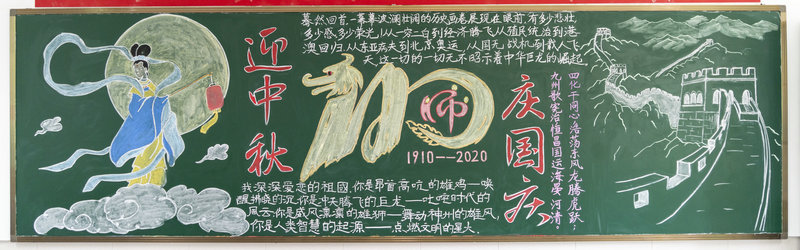 迎中秋
蓦然回首,一幕幕波澜壮阔的历史画卷展现在眼前,有多少悲壮,
多少感,多少荣光,从一穷二白到经济腾飞,从殖民统治到港
澳回归,从东亚病夫到北京奥运,从国无战机到载人飞
天,这一切的一切无不昭示着中华巨龙的崛起
师
1910——2020
庆国庆
四化千同心浩荡东风龙腾虎跃;
九州歌宪治恒昌国运海晏河清。
我深深爱恋的祖國,你是昂首高吭的雄鸡——唤
醒拂晓的沉,你是冲天腾飞的巨龙——叱咤时代的
風云,你是威风凛凛的雄狮——舞动神州的雄风,
你是人类智慧的起源——点燃文明的星火.